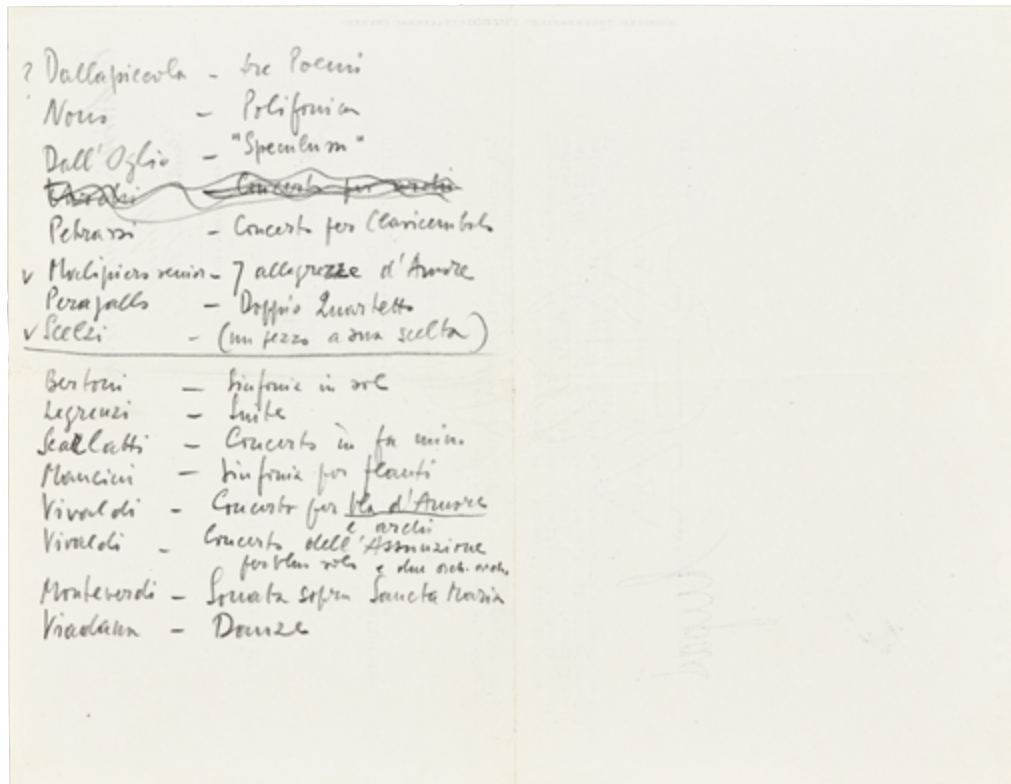 ? Dallapiccola - tre Poemi
Nono - Polifonica
Dall'Oglio - "Speculum"
Concerto per archi
Petrassi - Concerto per Clavicembalo
v Malipiero senior - 7 allegrezze d'Amore
Peragallo - Doppio Quartetto
v Scelsi - (un pezzo a sua scelta)
Bertoni - Sinfonia in sol
Legrenzi - Suite
Scarlatti - Concerto in fa min.
Mancini - Sinfonia per flauti
Vivaldi - Concerto per vla d'Amore
e archi
Vivaldi - Concerto dell'Assunzione
per vlno solo e due orch. archi
Monteverdi - Sonata sopra Sancta Maria
Viadana - Danze